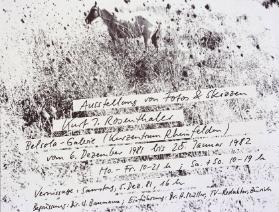 Ausstellung von Fotos & Skizzen
Kurt J. Rosenthaler
Belsola-Galerie (Kurzentrum Rheinfelden)
vom 6. Dezember 1981 bis 25. Januar 1982
Mo - Fr. 10-21 h - Sa + So. 10-19 h
Vernissage: Samstag, 5. Dez. 81, 16 h
Begrüssung: Dr. U. Baumann; Einführung: Dr. B. Müller, TV-Redaktor, Zürich